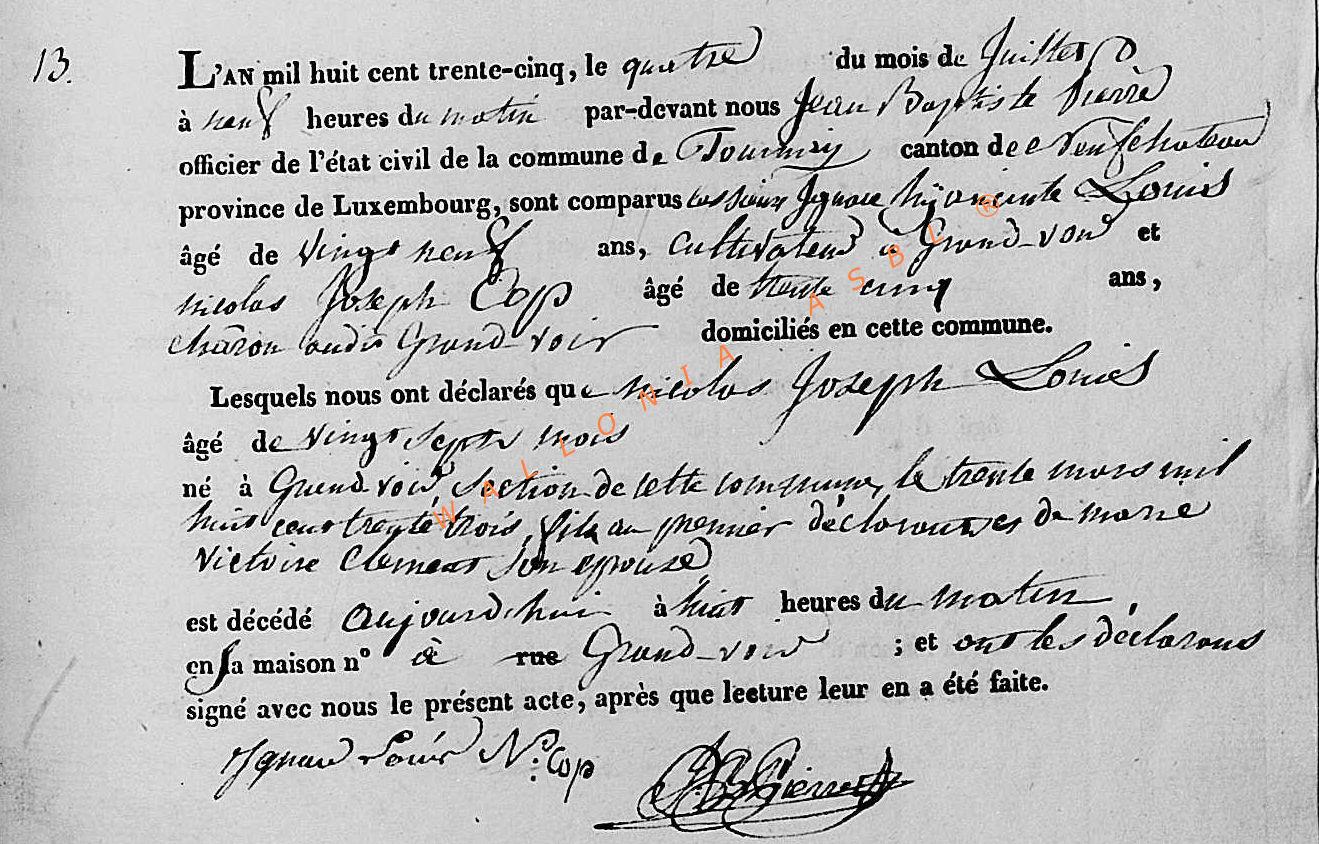 13.
L'AN mil huit cent trente-cinq, le quatre du mois de Juillet
à neuf heures du matin par-devant nous Jean Baptiste Pierre
officier de l'état civil de la commune de Tournay canton de Neufchateau
province de Luxembourg, sont comparus les sieurs Ignace hyacinte Louis
âgé de vingt neuf ans, cultivateur a Grand-voir et
nicolas Joseph Cop âgé de trente cinq ans,
charon audit Grand-voir domiciliés en cette commune.
Lesquels nous ont déclarés que nicolas Joseph Louis
âgé de vingt sept mois
né à Grand voir, section de cette commune, le trente mars mil
huit cent trente trois, fils du premier déclarant et de marie
Victoire Clement son epouse
est décédé aujourd'hui à huit heures du matin,
en sa maison nº à rue Grand-voir ; et ont les déclarans
signé avec nous le présent acte, après que lecture leur en a été faite.
Ignace Louis N: Cop
J B Pierre
WALLONIA ASBL ®